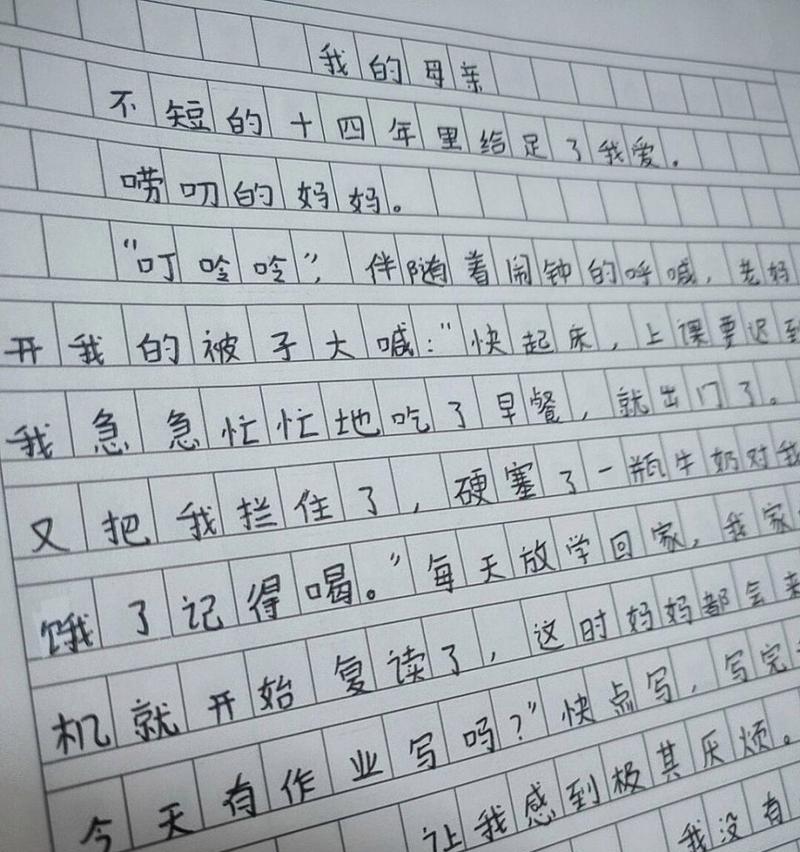 我的母亲
不短的十四年里给足了我爱。
唠叨的妈妈。
“叮呤呤”，伴随着闹钟的呼喊，老妈
开我的被子大喊：“快起床，上课要迟到
我急急忙忙地吃了早餐，就出门了。
又把我拦住了，硬塞了一瓶牛奶对我
饿了记得喝。”每天放学回家，我家
机就开始复读了，这时妈妈都会来
今天有作业写吗？”快点写，写完
让我感到极其厌烦。
我没有